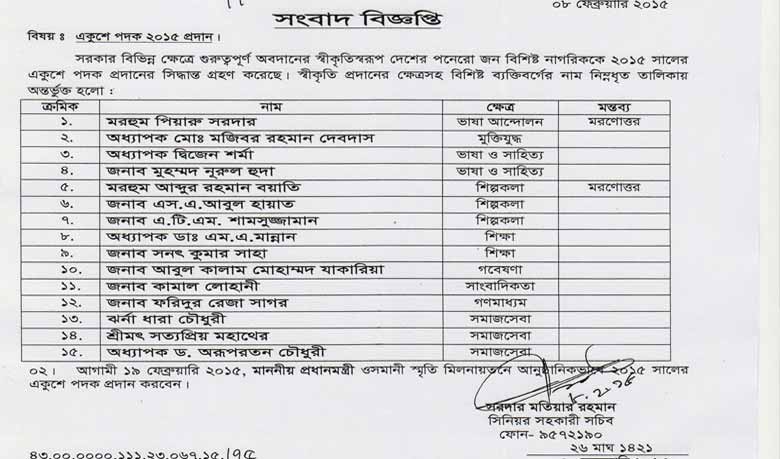 ০৮ ফেব্রুয়ারি ২০১৫
সংবাদ বিজ্ঞপ্তি
বিষয় ঃ একুশে পদক ২০১৫ প্রদান।
সরকার বিভিন্ন ক্ষেত্রে গুরুত্বপূর্ণ অবদানের স্বীকৃতিস্বরূপ দেশের পনেরো জন বিশিষ্ট নাগরিককে ২০১৫ সালের
একুশে পদক প্রদানের সিদ্ধান্ত গ্রহণ করেছে। স্বীকৃতি প্রদানের ক্ষেত্রসহ বিশিষ্ট ব্যক্তিবর্গের নাম নিম্নধৃত তালিকায়
অন্তর্ভুক্ত হলো :
ক্রমিক নাম ক্ষেত্র মন্তব্য
১. মরহুম পিয়ারু সরদার ভাষা আন্দোলন মরণোত্তর
২. অধ্যাপক মোঃ মজিবর রহমান দেবদাস মুক্তিযুদ্ধ
৩. অধ্যাপক দ্বিজেন শর্মা ভাষা ও সাহিত্য
৪. জনাব মুহম্মদ নূরুল হুদা ভাষা ও সাহিত্য
৫. মরহুম আব্দুর রহমান বয়াতি শিল্পকলা মরণোত্তর
৬. জনাব এস.এ.আবুল হায়াত শিল্পকলা
৭. জনাব এ.টি.এম. শামসুজ্জামান শিল্পকলা
৮. অধ্যাপক ডাঃ এম.এ.মান্নান শিক্ষা
৯. জনাব সনৎ কুমার সাহা শিক্ষা
১০. জনাব আবুল কালাম মোহাম্মদ যাকারিয়া গবেষণা
১১. জনাব কামাল লোহানী সাংবাদিকতা
১২. জনাব ফরিদুর রেজা সাগর গণমাধ্যম
১৩. ঝর্না ধারা চৌধুরী সমাজসেবা
১৪. শ্রীমৎ সত্যপ্রিয় মহাথের সমাজসেবা
১৫. অধ্যাপক ড. অরূপরতন চৌধুরী সমাজসেবা
০২। আগামী ১৯ ফেব্রুয়ারি ২০১৫, মাননীয় প্রধানমন্ত্রী ওসমানী স্মৃতি মিলনায়তনে আনুষ্ঠানিকভাবে ২০১৫ সালের
একুশে পদক প্রদান করবেন।
৮.২.১৫
সরদার মতিয়ার রহমান
সিনিয়র সহকারী সচিব
ফোন- ৯৫৭২১৯০
২৬ মাঘ ১৪২১
৪৩.০০.০০০০.১১১.২৩.০৬৭.১৫.১৭৫